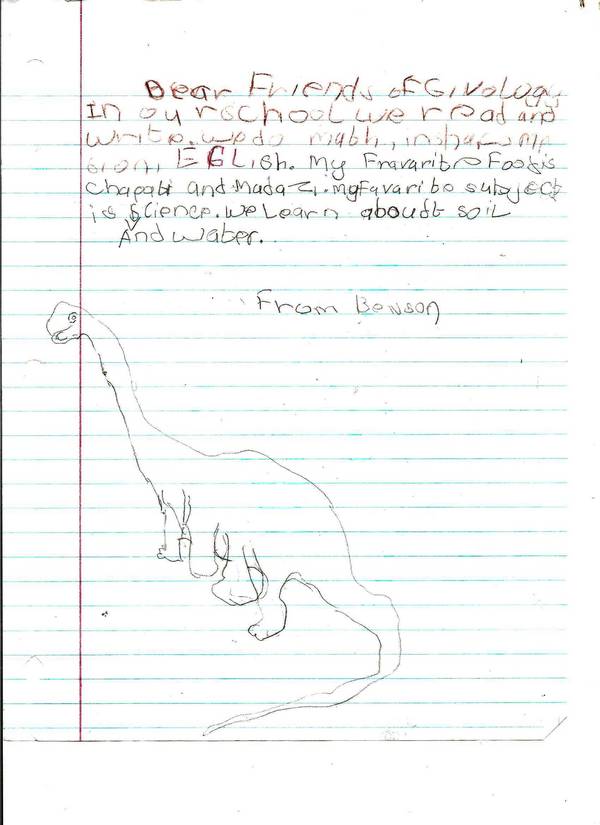 Dear Friends of Givology
In our school we read and
write. we do math,
EGLish. My Fravarite Food is
chapati and Madazi. my Favarite subject
is science. we Learn aboudt soil
And water.
From Benson